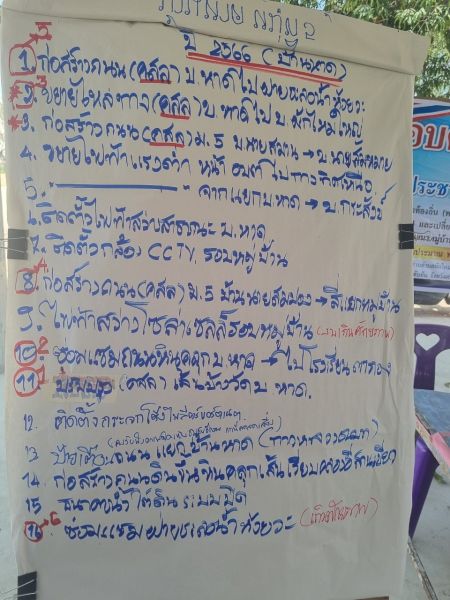 ปี 2566 (บ้านหาด)
5
1. ก่อสร้างถนน (คสล) บ.หาด ไป ฝายชะลอน้ำห้วยวะ
3
2. ขยายไหล่ทาง (คสล) บ.หาด ไป บ.ผักไหมใหญ่
3. ก่อสร้างถนน (คสล) ม.5 บ.นายสมาน → บ.นายสมหมาย
4. ขยายไฟฟ้าแรงต่ำ หน้า อบต ไป
5. จากแยก บ.หาด → บ.กระสังข์
6. ติดตั้งไฟฟ้าสาธารณะ บ.หาด
7. ติดตั้งกล้อง CCTV. รอบหมู่บ้าน
4
8. ก่อสร้างถนน (คสล) ม.5 บ้านนายสมปอง → สี่แยกหมู่บ้าน
9. ไฟฟ้าสว่างโซล่าเซลล์รอบหมู่บ้าน
2
10. ซ่อมแซมถนนหินคลุก บ.หาด → ไปโรงเรียน
1
11. (คสล) เส้นข้างวัด บ.หาด.
12. ติดตั้งกระจกโค้ง
13. ป้ายเตือน ถนน แยกบ้านหาด (ทางหลวงชนบท)
14. ก่อสร้างถนนดินขึ้นหินคลุกเส้นเรียบคลองอีสานเขียว
15. ธนาคารน้ำใต้ดินระบบปิด
6
16. ซ่อมแซมฝายชะลอน้ำห้วยวะ (เกินศักยภาพ)